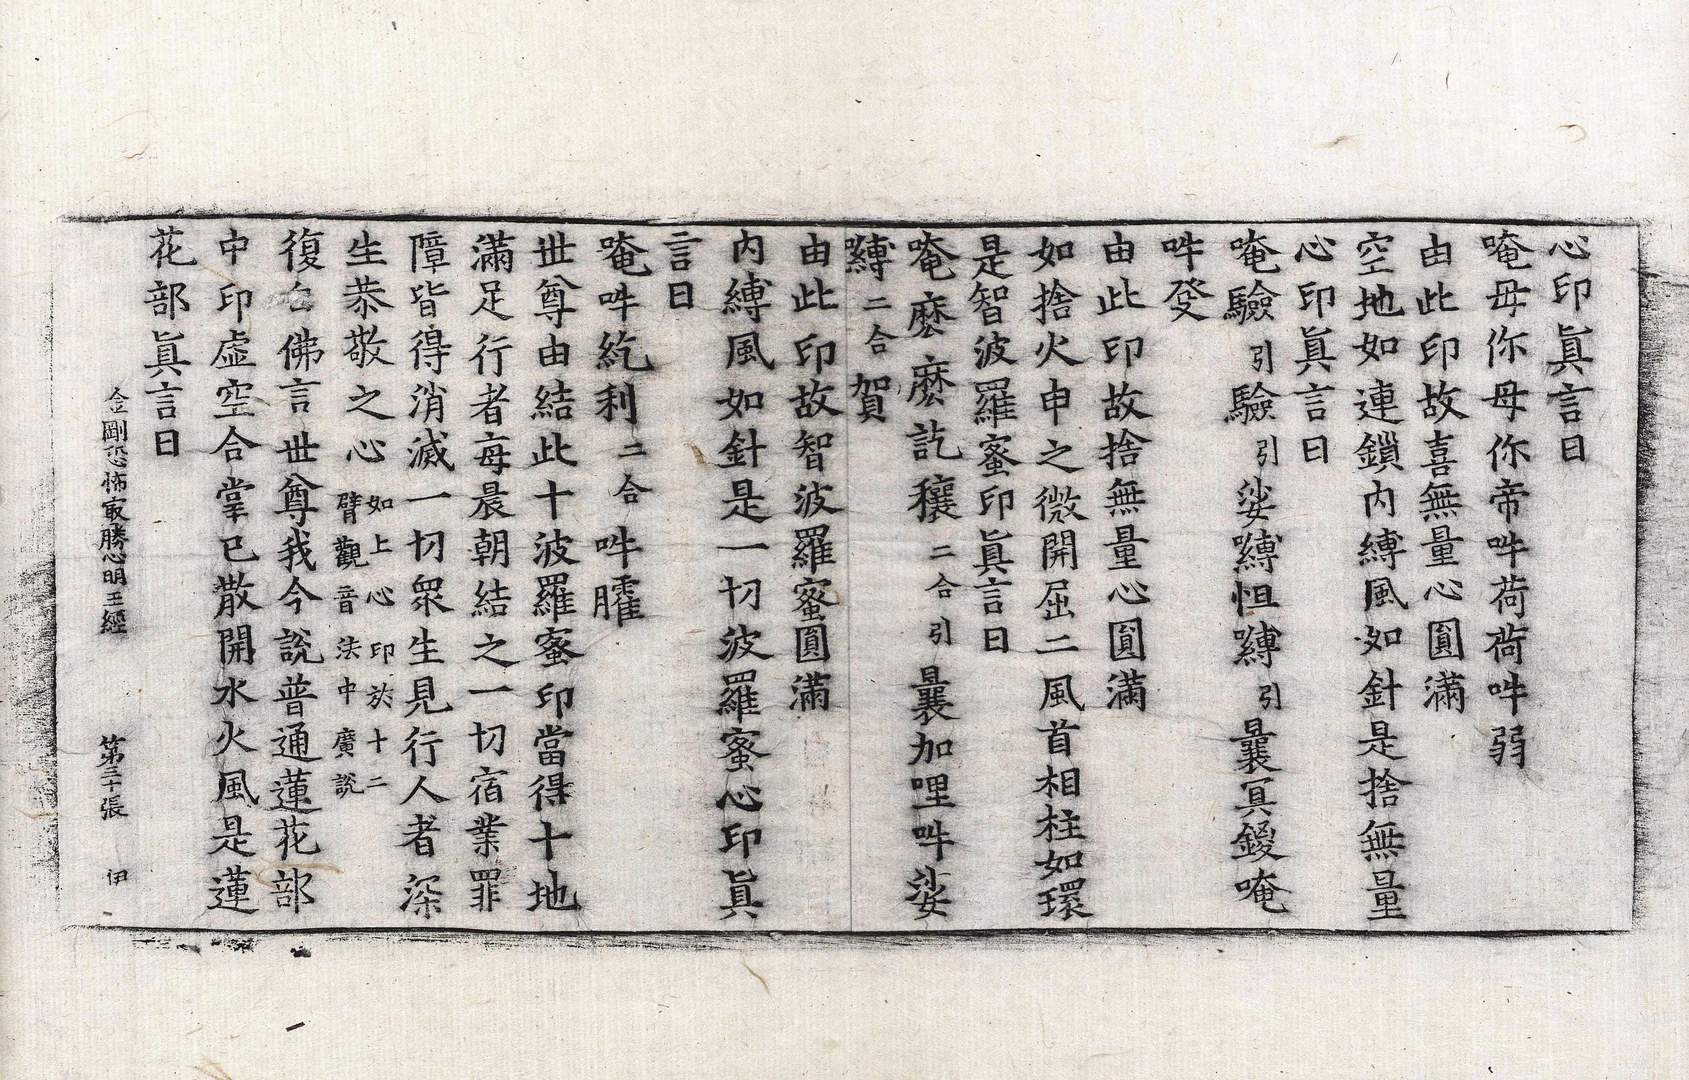 心印眞言曰
唵母你母你帝吽荷荷吽弱
由此印故喜無量心圓滿
空地如連鎖內縛風如針是捨無量
心印眞言曰
唵驗引驗引娑嚩怛嚩引曩冥鑁唵
吽癹
由此印故捨無量心圓滿
如捨火申之微開屈二風首相柱如環
是智波羅蜜印眞言曰
唵麽麽訖穰二合引曩加哩吽娑
嚩二合賀
由此印故智波羅蜜圓滿
內縛風如針是一切波羅蜜心印眞
言曰
唵吽紇利二合吽臛
世尊由結此十波羅蜜印當得十地
滿足行者每晨朝結之一切宿業罪
障皆得消滅一切衆生見行人者深
生恭敬之心如上心印於十二臂觀音法中廣說
復白佛言世尊我今說普通蓮花部
中印虛空合掌已散開水火風是蓮
花部眞言曰
金剛恐怖最勝心明王經 第三十張 伊